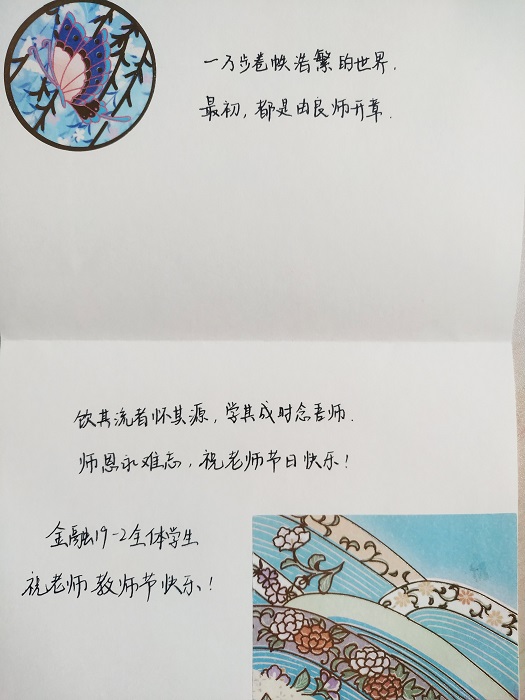 一万步卷帙浩繁的世界.
最初,都是由良师开章.
饮其流者怀其源,学其成时念吾师.
师恩永难忘,祝老师节日快乐!
金融19-2全体学生
祝老师教师节快乐!